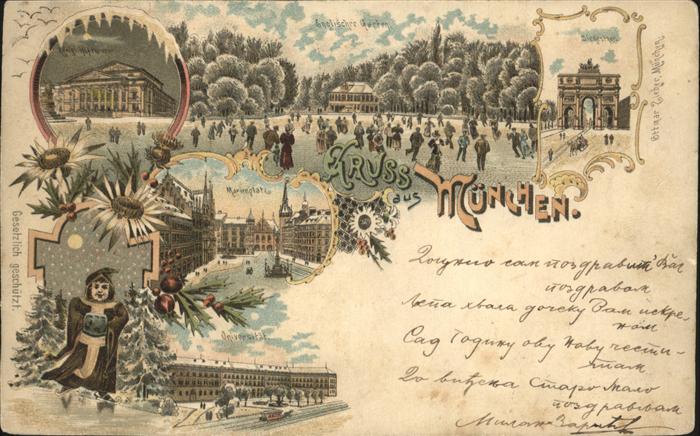 Königl. Hoftheater
Englischer Garten
Siegesthor
Ottmar Zieher, München.
Marienplatz
GRUSS
aus
MÜNCHEN.
Gesetzlich geschützt.
Universität
Доцкно сам поздравит Вас
поздравам
Лепа хвала Вам искре-
ном
Сад Годину ову Нову чести-
там
До виђења Старо Мало
поздрављам
Милан